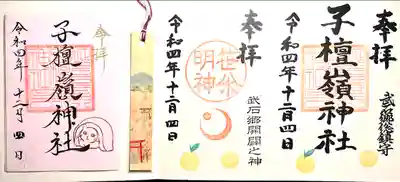 奉拝
鎮守
子檀嶺神社
令和四年十二月四日
奉拝
武石郷開闢之神
明神
令和四年十二月四日
奉拝
子檀嶺神社
令和四年十二月四日